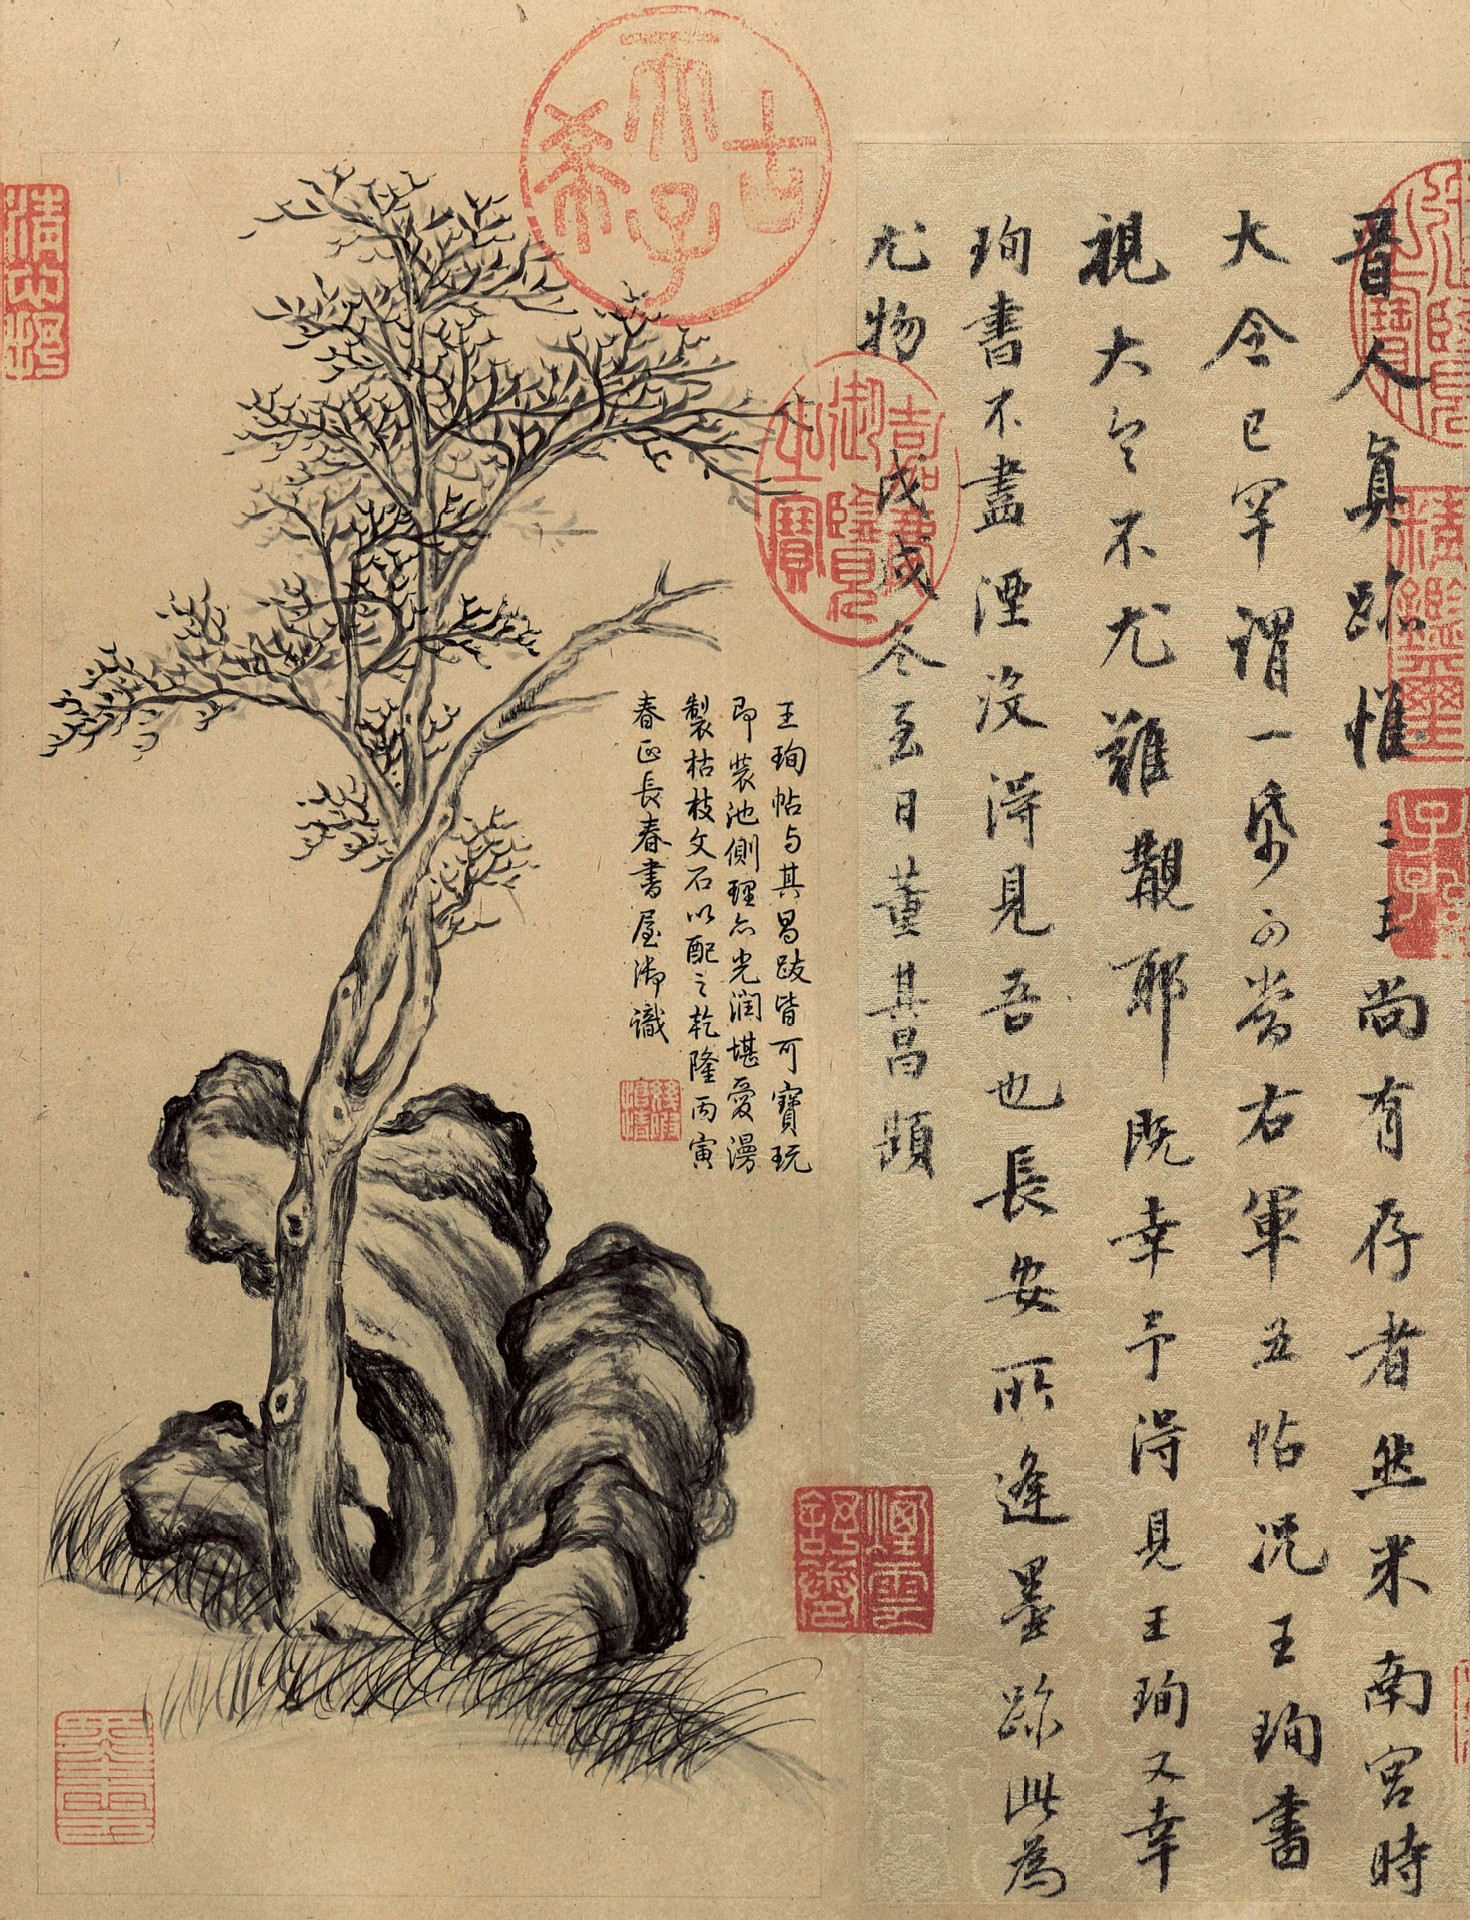 晉人真跡惟二王尚有存者然米南宮時
大令已罕謂一帋可當右軍五帖況王珣書
視大令不尤難覯耶既幸予得見王珣又幸
珣書不盡湮沒得見吾也長安所逢墨跡此為
尤物戊戌冬至日董其昌題
王珣帖与其昌跋皆可寶玩
即裝池側理亦光潤堪愛漫
製枯枝文石以配之乾隆丙寅
春正長春書屋御識
古希天子
嘉慶御覽之寶
煙雲舒卷